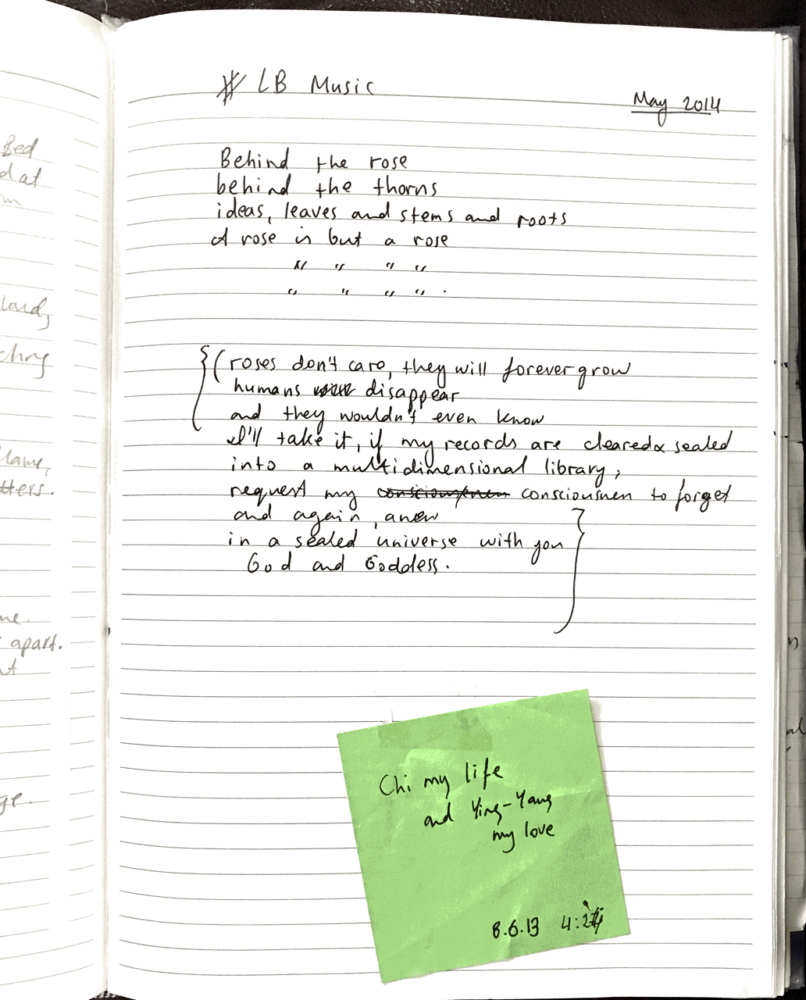 Bed
d at
m
Laud,
ching
lame,
tters.
me.
apart.
ut
ge.
# LB Music
May 2014
Behind the rose
behind the thorns
ideas, leaves and stems and roots
A rose is but a rose
" " " "
" " " " .
{(roses don't care, they will forever grow
humans disappear
and they wouldn't even know
I'll take it, if my records are cleared & sealed
into a multidimensional library,
request my consciousness consciousnen to forget
and again, anew
in a sealed universe with you }
God and Goddess.
Chi my life
and Ying-Yang
my love
8.6.13 4:24